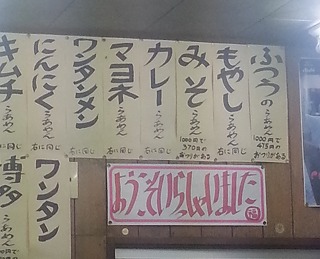 ふつうのらあめん
1000円で
475円の
おつりがある
もやしらあめん
右に同じ
みそらあめん
1000円で
370円の
おつりがある
カレーらあめん
右に同じ
マヨネらあめん
右に同じ
ワンタンメン
右に同じ
にんにくらあめん
右に同じ
キムチらあめん
に同じ
ワンタン
右に同じ
博多らあめん
ようこそいらっしゃいました
福